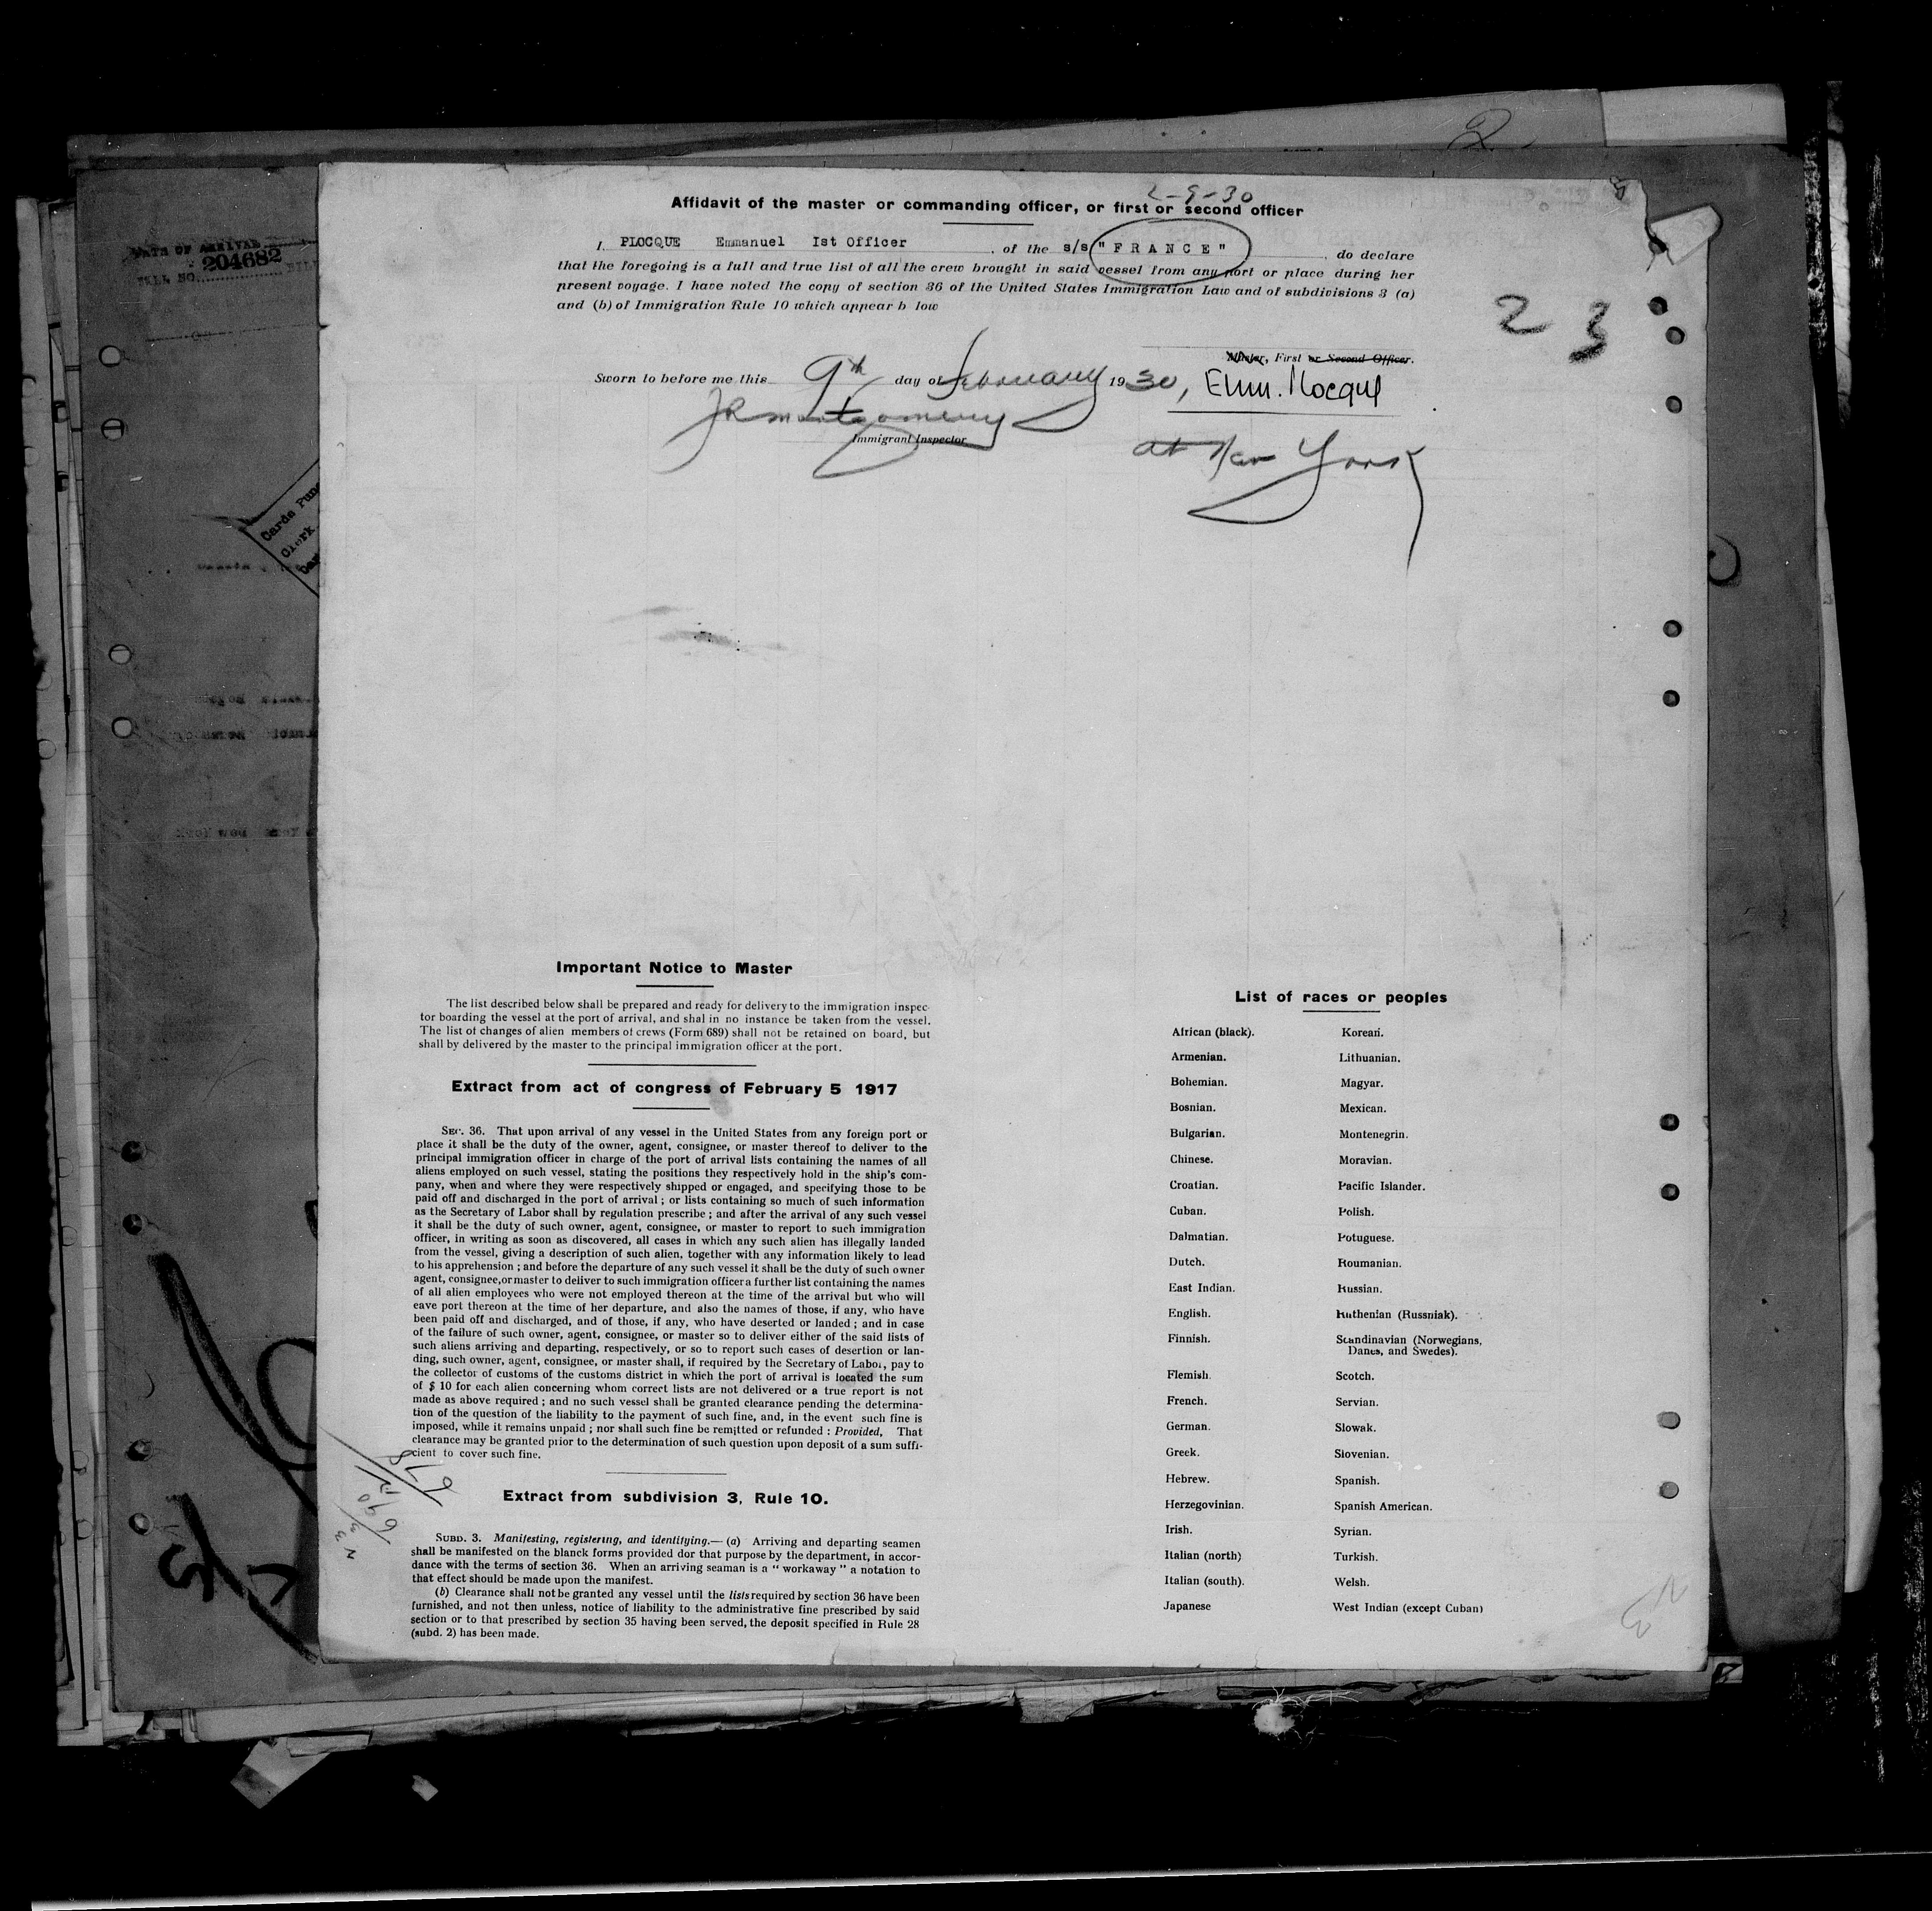 2
2-9-30
Affidavit of the master or commanding officer, or first or second officer
I. PLOCQUE Emmanuel Ist Officer of the s/s "FRANCE", do declare
that the foregoing is a full and true list of all the crew brought in said vessel from any port or place during her
present voyage. I have noted the copy of section 36 of the United States Immigration Law and of subdivisions 3 (a)
and (b) of Immigration Rule 10 which appear b low
2 3
Master, First or Second Officer.
Sworn to before me this 9th day of February 1930, Emm. Plocque
JR Montgomery
Immigrant Inspector
at New York
DATE OF ARRIVAL
204682
Cards Pun
Clerk
Important Notice to Master
The list described below shall be prepared and ready for delivery to the immigration inspec-
tor boarding the vessel at the port of arrival, and shal in no instance be taken from the vessel.
The list of changes of alien members of crews (Form 689) shall not be retained on board, but
shall by delivered by the master to the principal immigration officer at the port.
Extract from act of congress of February 5 1917
SEC. 36. That upon arrival of any vessel in the United States from any foreign port or
place it shall be the duty of the owner, agent, consignee, or master thereof to deliver to the
principal immigration officer in charge of the port of arrival lists containing the names of all
aliens employed on such vessel, stating the positions they respectively hold in the ship's com-
pany, when and where they were respectively shipped or engaged, and specifying those to be
paid off and discharged in the port of arrival ; or lists containing so much of such information
as the Secretary of Labor shall by regulation prescribe ; and after the arrival of any such vessel
it shall be the duty of such owner, agent, consignee, or master to report to such immigration
officer, in writing as soon as discovered, all cases in which any such alien has illegally landed
from the vessel, giving a description of such alien, together with any information likely to lead
to his apprehension ; and before the departure of any such vessel it shall be the duty of such owner
agent, consignee, or master to deliver to such immigration officer a further list containing the names
of all alien employees who were not employed thereon at the time of the arrival but who will
eave port thereon at the time of her departure, and also the names of those, if any, who have
been paid off and discharged, and of those, if any, who have deserted or landed ; and in case
of the failure of such owner, agent, consignee, or master so to deliver either of the said lists of
such aliens arriving and departing, respectively, or so to report such cases of desertion or lan-
ding, such owner, agent, consignee, or master shall, if required by the Secretary of Labor, pay to
the collector of customs of the customs district in which the port of arrival is located the sum
of $ 10 for each alien concerning whom correct lists are not delivered or a true report is not
made as above required ; and no such vessel shall be granted clearance pending the determina-
tion of the question of the liability to the payment of such fine, and, in the event such fine is
imposed, while it remains unpaid ; nor shall such fine be remitted or refunded : Provided, That
clearance may be granted prior to the determination of such question upon deposit of a sum suffi-
cient to cover such fine.
Extract from subdivision 3, Rule 10.
SUBD. 3. Manifesting, registering, and identifying.— (a) Arriving and departing seamen
shall be manifested on the blanck forms provided dor that purpose by the department, in accor-
dance with the terms of section 36. When an arriving seaman is a " workaway " a notation to
that effect should be made upon the manifest.
(b) Clearance shall not be granted any vessel until the lists required by section 36 have been
furnished, and not then unless, notice of liability to the administrative fine prescribed by said
section or to that prescribed by section 35 having been served, the deposit specified in Rule 28
(subd. 2) has been made.
List of races or peoples
African (black). Korean.
Armenian. Lithuanian.
Bohemian. Magyar.
Bosnian. Mexican.
Bulgarian. Montenegrin.
Chinese. Moravian.
Croatian. Pacific Islander.
Cuban. Polish.
Dalmatian. Potuguese.
Dutch. Roumanian.
East Indian. Russian.
English. Ruthenian (Russniak).
Finnish. Scandinavian (Norwegians,
Danes, and Swedes).
Flemish. Scotch.
French. Servian.
German. Slowak.
Greek. Slovenian.
Hebrew. Spanish.
Herzegovinian. Spanish American.
Irish. Syrian.
Italian (north) Turkish.
Italian (south). Welsh.
Japanese West Indian (except Cuban)